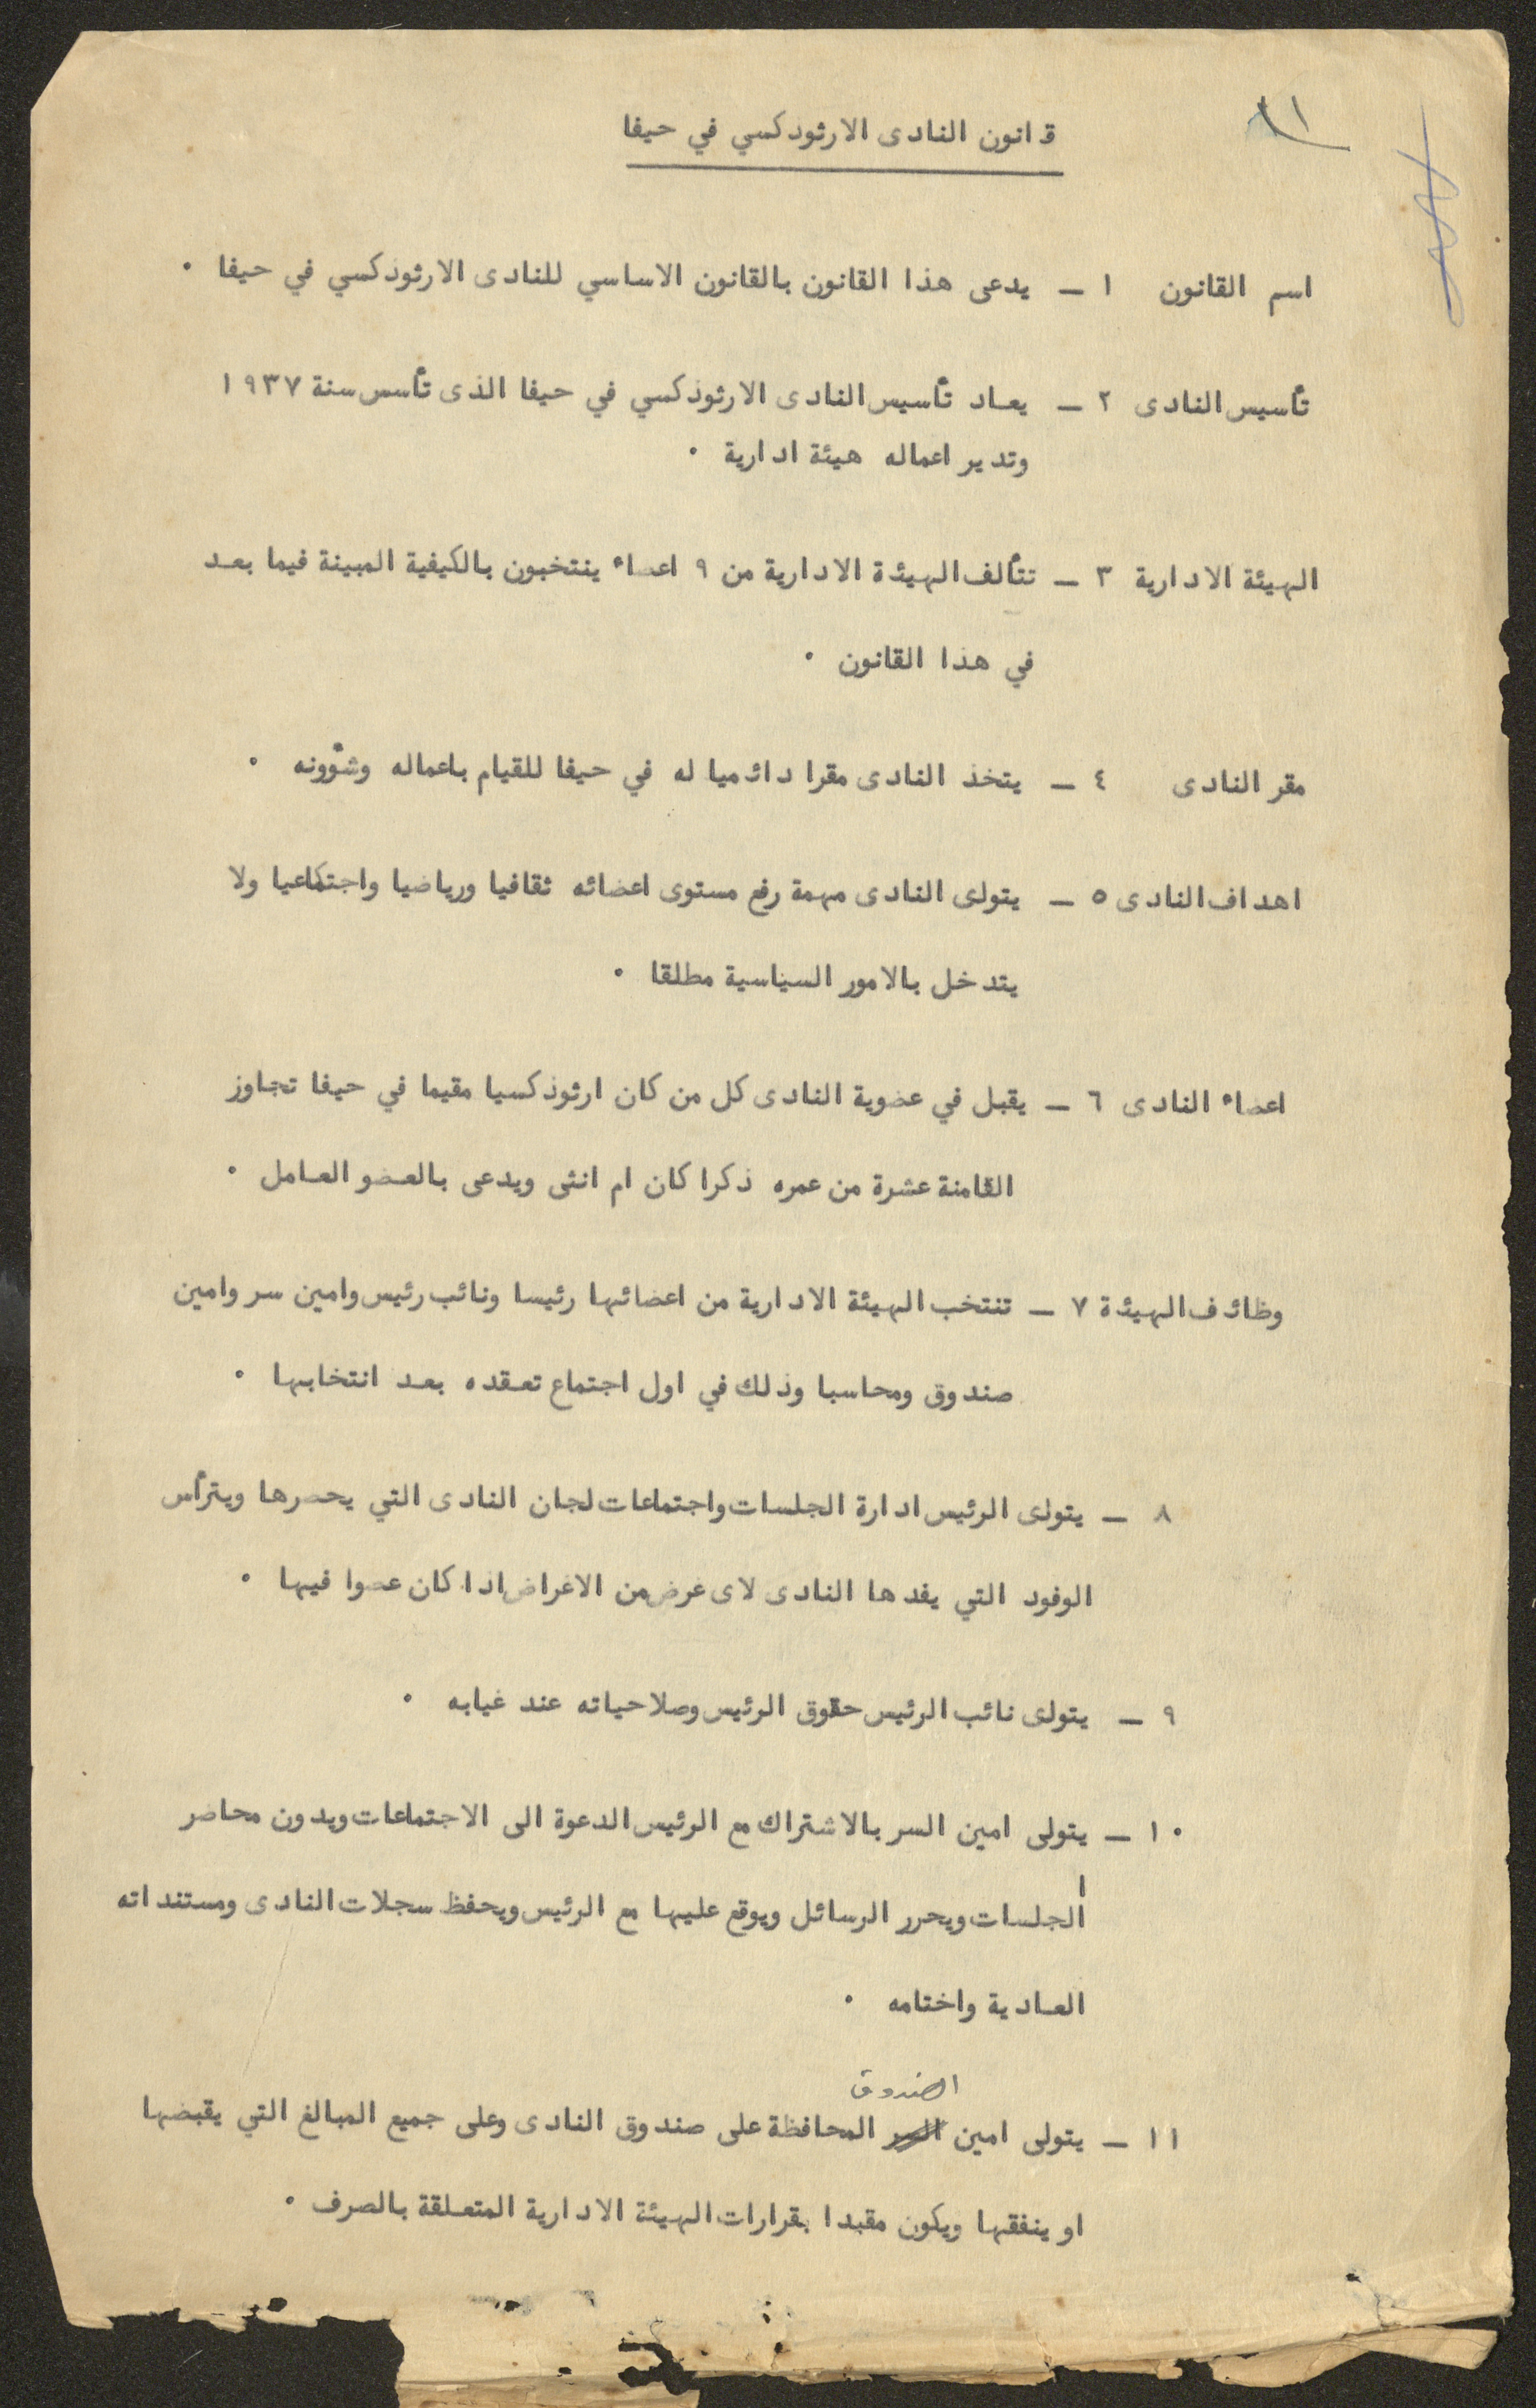 قانون النادى الارثوذكسي في حيفا
اسم القانون ١ ــ يدعى هذا القانون بالقانون الاساسي للنادى الارثوذكسي في حيفا ٠
تأسيس النادى ٢ ــ يعاد تأسيس النادى الارثوذكسي في حيفا الذى تأسس سنة ١٩٣٧
وتدير اعماله هيئة ادارية ٠
الهيئة الادارية ٣ ــ تتألف الهيئة الادارية من ٩ اعضاء ينتخبون بالكيفية المبينة فيما بعد
في هذا القانون ٠
مقر النادى ٤ ــ يتخذ النادى مقرا دائميا له في حيفا للقيام باعماله وشؤونه ٠
اهداف النادى ٥ ــ يتولى النادى مهمة رفع مستوى اعضائه ثقافيا ورياضيا واجتماعيا ولا
يتدخل بالامور السياسية مطلقا ٠
اعضاء النادى ٦ ــ يقبل في عضوية النادى كل من كان ارثوذكسيا مقيما في حيفا تجاوز
الثامنة عشرة من عمره ذكرا كان ام انثى ويدعى بالعضو العامل ٠
وظائف الهيئة ٧ ــ تنتخب الهيئة الادارية من اعضائها رئيسا ونائب رئيس وامين سر وامين
صندوق ومحاسبا وذلك في اول اجتماع تعقده بعد انتخابها ٠
٨ ــ يتولى الرئيس ادارة الجلسات واجتماعات لجان النادى التي يحضرها ويترأس
الوفود التي يفدها النادى لاى غرض من الاغراض اذا كان عضوا فيها ٠
٩ ــ يتولى نائب الرئيس حقوق الرئيس وصلاحياته عند غيابه ٠
١٠ ــ يتولى امين السر بالاشتراك مع الرئيس الدعوة الى الاجتماعات ويدون محاضر
الجلسات ويحرر الرسائل ويوقع عليها مع الرئيس ويحفظ سجلات النادى ومستنداته
العادية واختامه ٠
الصندوق
١١ ــ يتولى امين السر المحافظة على صندوق النادى وعلى جميع المبالغ التي يقبضها
او ينفقها ويكون مقيدا بقرارات الهيئة الادارية المتعلقة بالصرف ٠